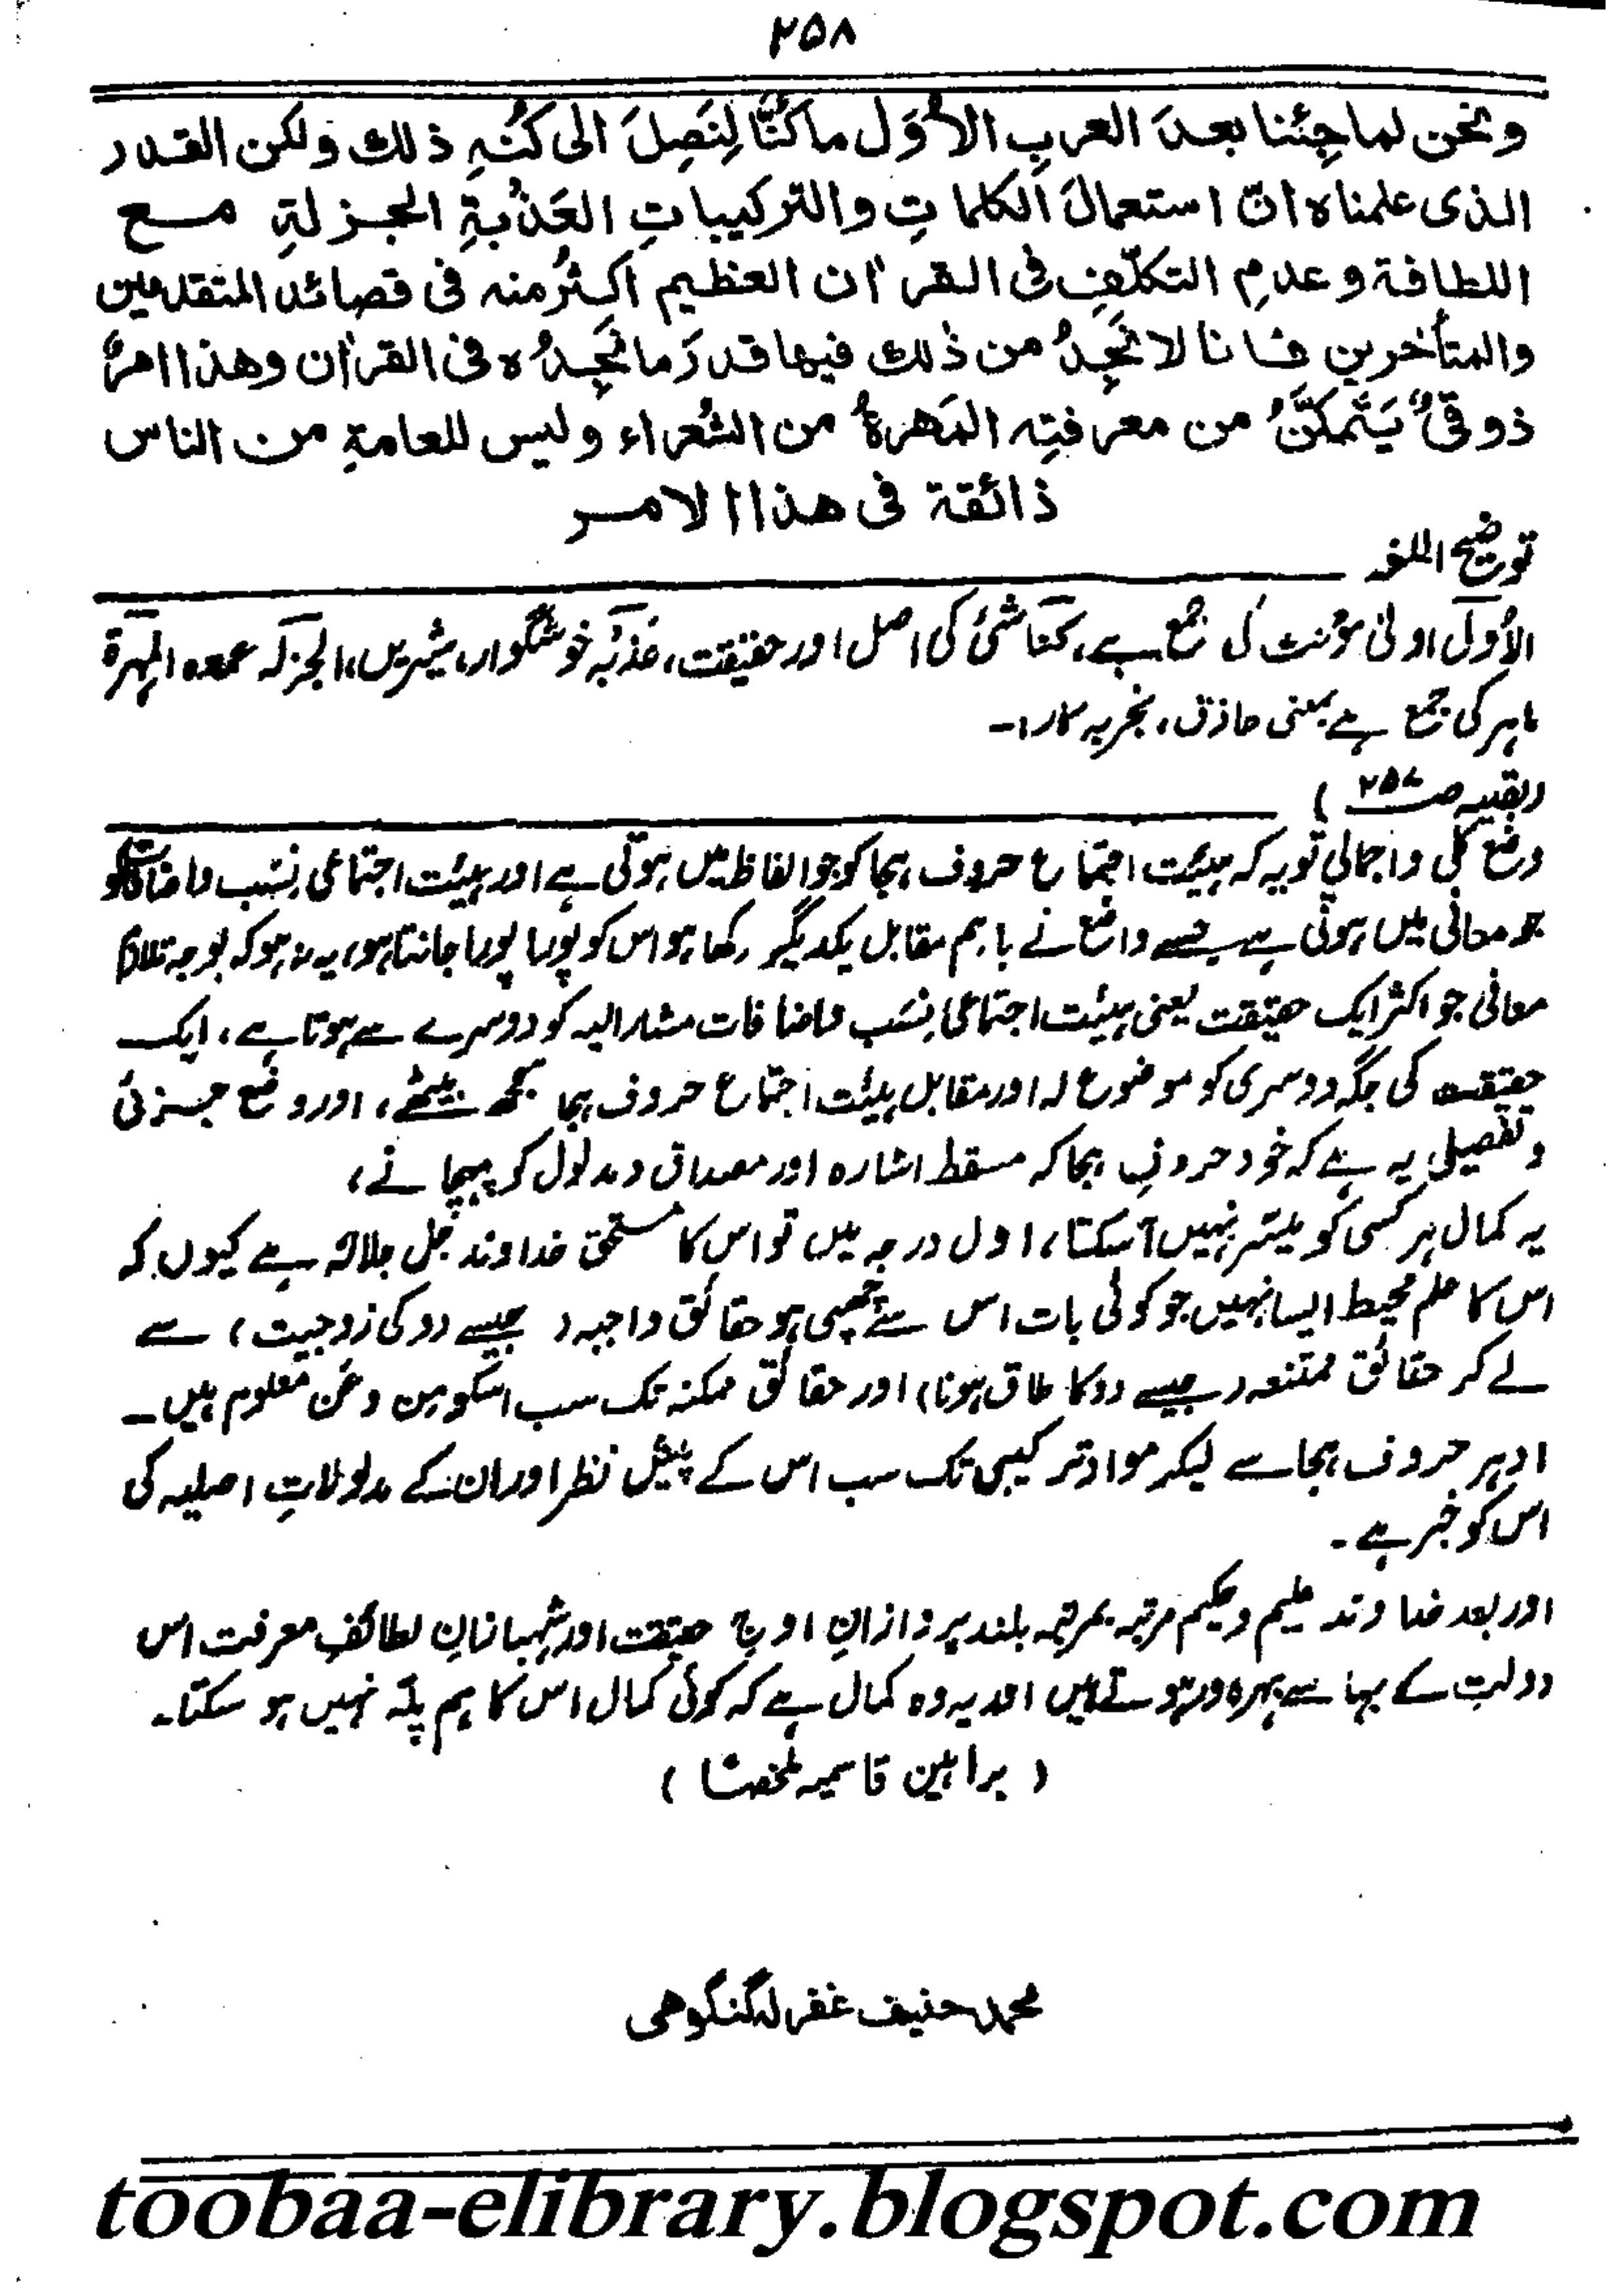 ۲۵۸
ونحن لما جِئنا بعدَ العربِ الاُوَل ما كُنَّا لِنَصِلَ الى كُنْهِ ذلك ولكن القدر
الذى علمناه انّ استعمالَ الكلماتِ والتركيباتِ العَذْبةِ الجزلةِ مع
اللطافة وعدمِ التكلّفِ فى القراٰن العظيم اكثرُ منه فى قصائد المتقدمين
والمتأخرين فانا لا نَجِدُ من ذلك فيها قدرَ ما نَجِدُه فى القراٰن وهذا امرٌ
ذوقىٌ يَتَمكَّنُ من معرفتِه المَهَرةُ من الشُعراء وليس للعامةِ من الناس
ذائقة فى هذا الامر
توضیح اللغۃ
الاُوَل اولیٰ مؤنث کی جمع ہے، کنہ شئ کی اصل اور حقیقت، عَذْبَہ خوشگوار، شیریں، الجزلہ عمدہ المہرۃ
ماہر کی جمع ہے بمعنی حاذق، تجربہ کار۱۔
(بقیہ صـ۲۵۷)
وضع کلی واجمالی تو یہ کہ ہیئت اجتماع حروف ہجا کو جو الفاظ میں ہوتی ہے اور ہیئت اجتماعی نِسَب واضافات کو
جو معانی میں ہوتی ہے جسے واضع نے باہم مقابل یکدیگر رکھا ہو اس کو پورا پورا جانتا ہو، یہ نہ ہو کہ بوجہ تلازم
معانی جو اکثر ایک حقیقت یعنی ہیئت اجتماعی نِسَب واضافات مشارالیہ کو دوسرے سے ہوتا ہے، ایک
حقیقت کی جگہ دوسری کو موضوع لہ اور مقابل ہیئت اجتماع حروف ہجا سمجھ بیٹھے، اور وضع جزئی
وتفصیلی یہ ہے کہ خود حروفِ ہجا کہ مسقط اشارہ اور مصداق ومدلول کو پہچانے،
یہ کمال ہر کسی کو میسّر نہیں آسکتا، اول درجہ میں تو اس کا مستحق خداوند جل جلالہ ہے کیوں کہ
اس کا علم محیط ایسا نہیں جو کوئی بات اس سے چھپی ہو حقائق واجبہ (جیسے دو کی زوجیت) سے
لے کر حقائق ممتنعہ (جیسے دو کا طاق ہونا) اور حقائق ممکنہ تک سب اسکو من وعن معلوم ہیں۔
ادہر حروف ہجا سے لیکر مواد ترکیبی تک سب اس کے پیش نظر اور ان کے مدلولاتِ اصلیہ کی
اس کو خبر ہے۔
اور بعد خداوند علیم وحکیم مرتبہ بمرتبہ بلند پروازانِ اوجِ حقیقت اور شہبازانِ لطائفِ معرفت اس
دولتِ بے بہا سے بہرہ ور ہوتے ہیں اور یہ وہ کمال ہے کہ کوئی کمال اس کا ہم پلّہ نہیں ہو سکتا۔
(براہین قاسمیہ ملخصًا)
محمد حنیف غفرلہ گنگوھی
toobaa-elibrary.blogspot.com